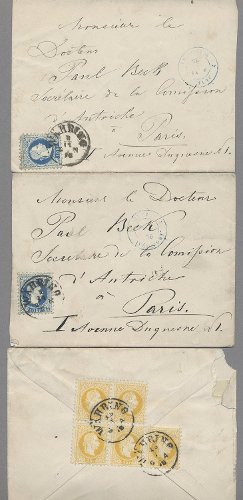 Monsieur le
Docteur
Paul Beck
Secrétaire de la Comission
d'Autriche
à
Paris.
1 Avenue Duquesne 21.
WÄHRING
Monsieur le Docteur
Paul Beck
Secrétaire de la Comission
d'Autriche
à
Paris.
1 Avenue Duquesne 21.
WÄHRING
WÄHRING
WÄHRING